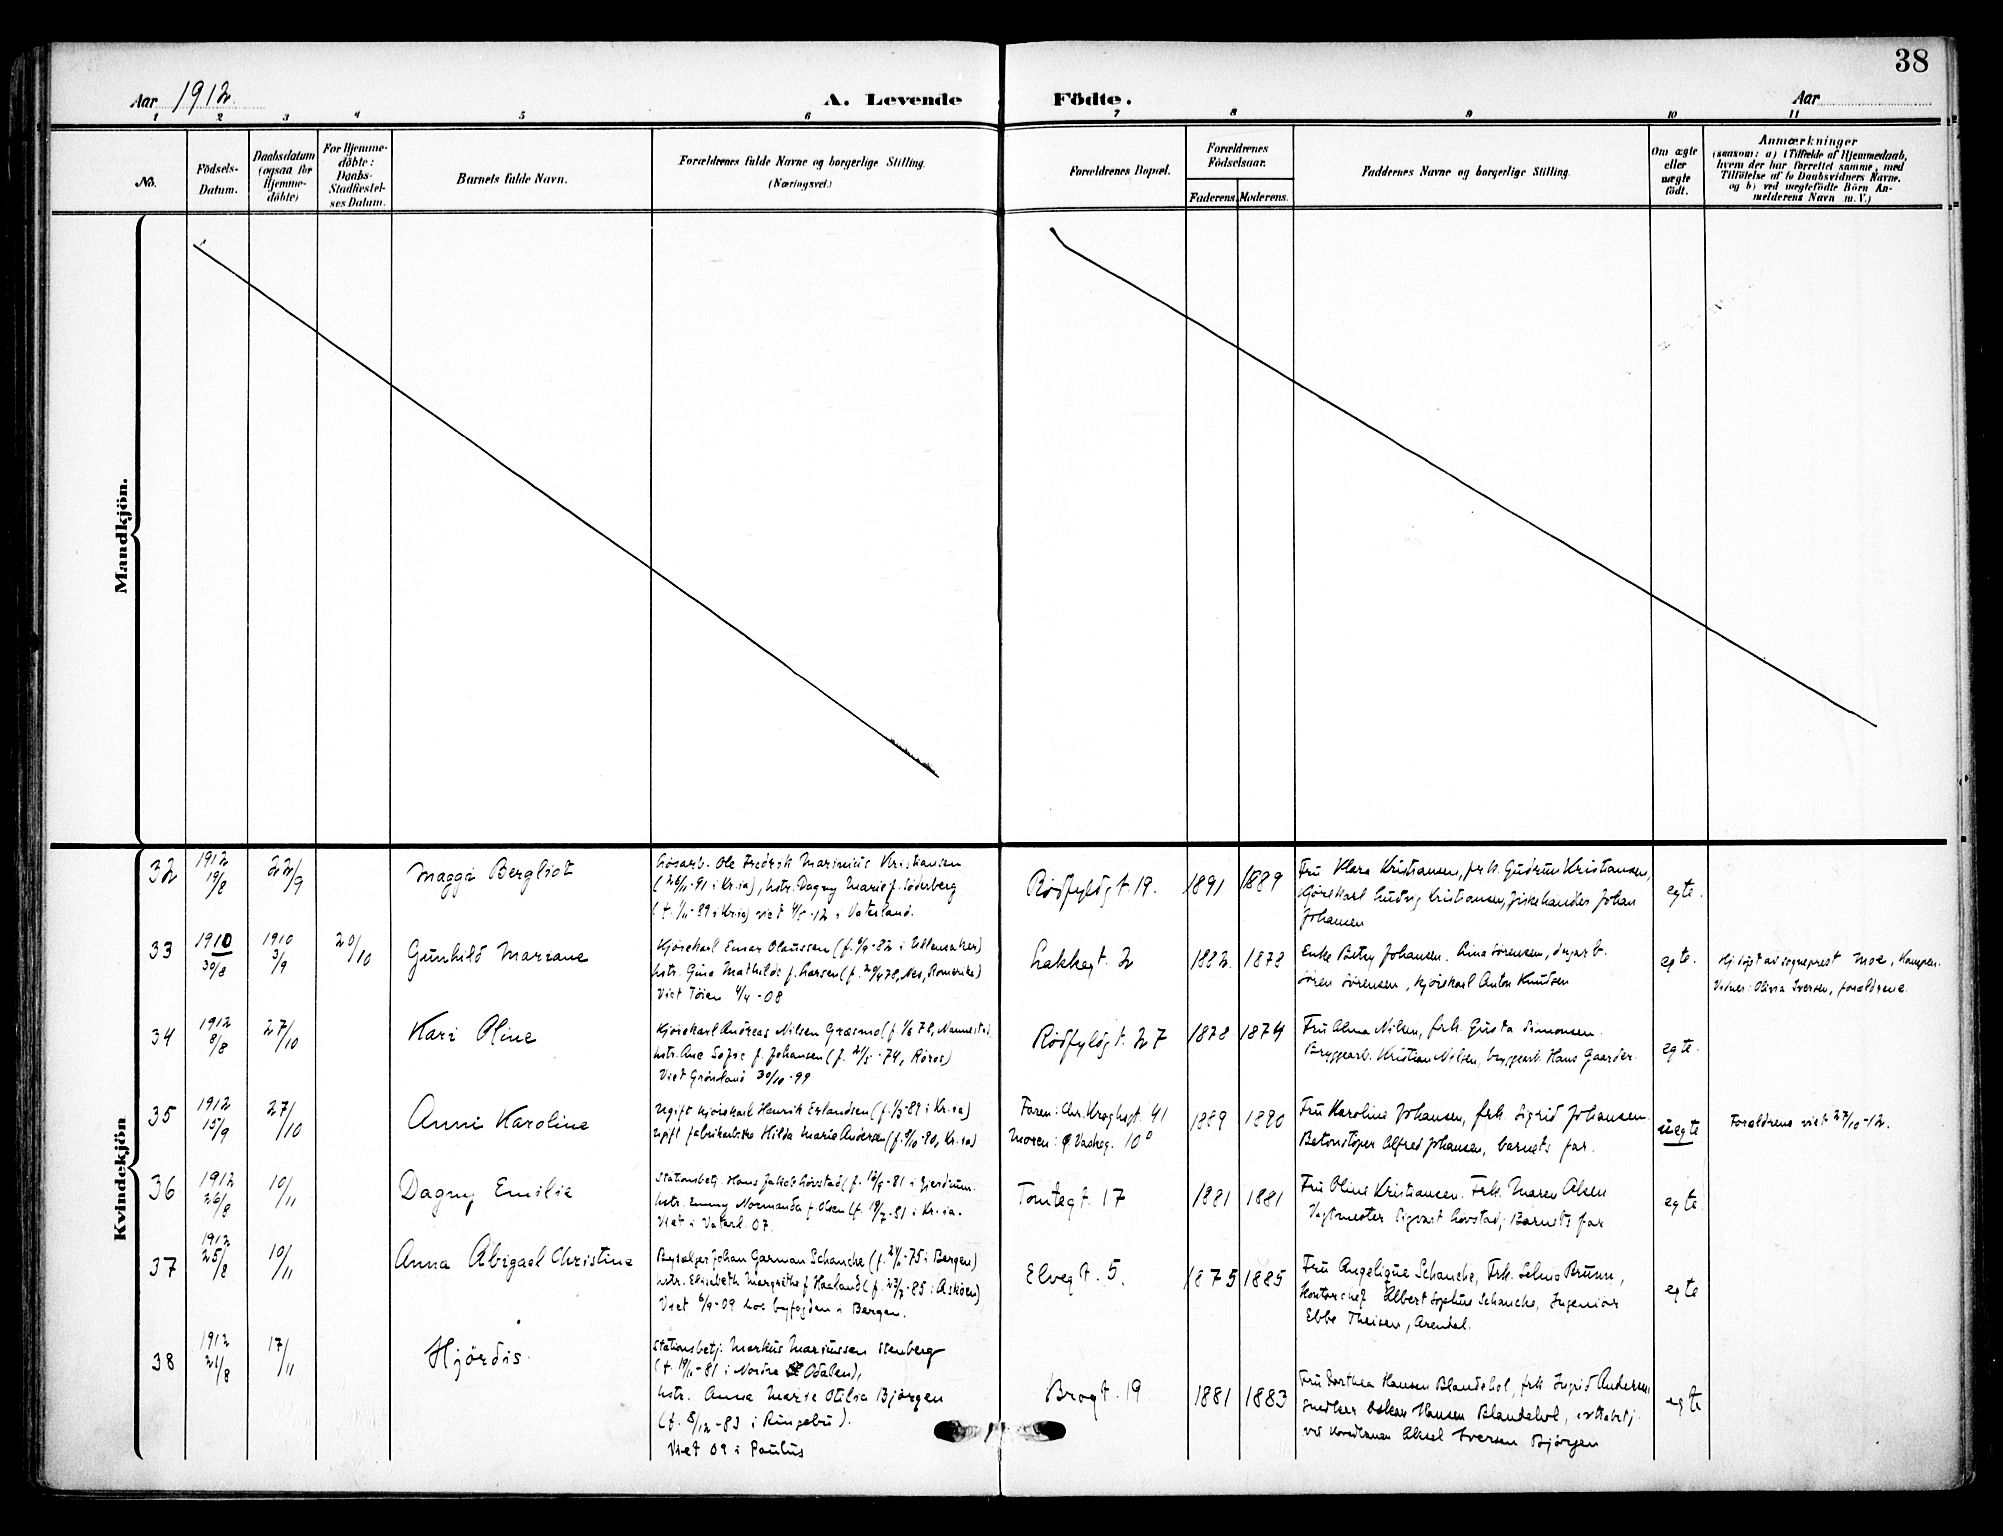 38
Aar 1912
A. Levende Födte.
Aar
1 2 3 4 5 6 7 8 9 10 11
No.
Födsels-Datum.
Daabsdatum (ogsaa for Hjemme-döbte)
For Hjemme-döbte: Daabs-Stadfæstel-ses Datum.
Barnets fulde Navn.
Forældrenes fulde Navne og borgerlige Stilling.
(Næringsvei.)
Forældrenes Bopæl.
Forældrenes Födselsaar.
Faderens. Moderens.
Faddernes Navne og borgerlige Stilling.
Om ægte eller uægte födt.
Anmærkninger
(saasom: a) i Tilfælde af Hjemmedaab,
hvem der har forrettet samme, med
Tilföielse af to Daabsvidners Navne.
og b) ved uægtefödte Börn An-
melderens Navn m. V.)
Mandkjön.
Kvindekjön
32 1912 19/8 22/9 Maggi Bergliot
Ole Fredrik Marinius Kristiansen
(26/11-91 i Kr.ia), hstr. Dagny Marie f. Söderberg
(f. 1/11-89 i Kr.ia) viet 4/5-12 i Vaterland.
Rødfyldgt. 19. 1891 1889
Fru Klara Kristiansen, frk. Gudrun Kristiansen,
Kjørekarl Ludvig Kristiansen, fiskehandler Johan
Johansen
egte.
33 1910 30/8 1910 3/9 20/10 Gunhild Mariane
Kjørekarl Einar Olaussen (f. 9/9-82 i Ullensaker)
hstr. Gina Mathilde f. Larsen (f. 20/4 78, Nes, Romerike)
Viet Tøien 4/4-08
Lakkegt. 2 1882. 1878
Enke Betzy Johansen. Lina Sörensen, dagarb.
Sören Sörensen, kjørekarl Anton Knutsen
egte.
Hj.døpt av sogneprest Moe, Kampen.
Vidner: Olivia Iversen, forældrene.
34 1912 8/8 27/10 Kari Oline
Kjørekarl Andreas Nilsen Græsmo (f. 1/6 78, Nannestad)
hstr. Ane Sofie f. Johansen (f. 21/5-74, Röros)
Viet Grönland 30/10-99
Rødfyldgt. 27 1878 1874
Fru Alma Nilsen, frk. Gusta Simonsen.
Bryggearb. Kristian Nilsen, bryggearb. Hans Gaarder.
egte.
35 1912 15/9 27/10 Anni Karoline
Ugift kjørekarl Henrik Erlandsen (f. 1/3-89 i Kr.ia)
ugift fabrikarbske Hilda Marie Andersen (f. 9/10-90, Kr.ia)
Faren: Chr. Kroghsgt. 41
Moren: Ø Vaskeg. 10
1889 1890
Fru Karoline Johansen, frk. Sigrid Johansen
Betonstöper Alfred Johansen, barnets far.
uegte
Foreldrene viet 27/10-12.
36 1912 26/8 10/11 Dagny Emilie
Stationsbetj. Hans Jakob Lövstad (f. 12/9-81 i Gjerdrum.
hstr. Emmy Normanda f. Olsen (f. 18/7-81 i Kr.ia.
Viet i Vaterl. 07.
Tomtegt. 17 1881 1881
Fru Oline Kristiansen. Frk. Maren Olsen
Vagtmester Sigvart Lövstad, Barnets far
egte
37 1912 25/8 10/11 Anna Abigael Christine
Byselger Johan Garman Schancke (f. 21/1-75 i Bergen)
hstr. Elisabeth Margrethe f. Haaland (f. 23/7-85 i Askøen)
Viet 6/9-09 hos byfogden i Bergen.
Elvegt. 5. 1875 1885
Fru Angelique Schancke, Frk. Selma Bruun,
Kontorchef Albert Sophus Schancke, Ingeniør
Ebbe Theisen, Arendal.
egte
38 1912 21/8 17/11 Hjördis.
Stationsbetj. Markus Mariussen Stenberg
(f. 19/11-81 i Nordre Odalen),
hstr. Anna Marie Otilia Björgen
(f. 8/12-83 i Ringebu).
Viet 09 i Paulus
Brogt. 19. 1881 1883
Fru Dorthea Hansen Blandehol, frk. Ingrid Andersen
Snedker Oskar Hansen Blandehol,
ved Aksel Iversen Björgen
egte